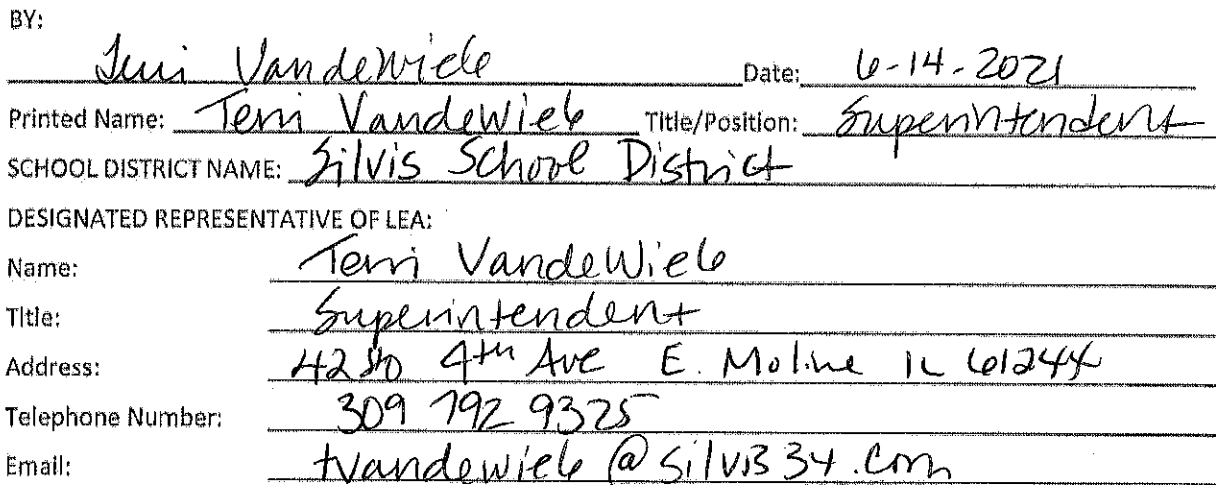 BY:
Terri VandeWiele Date: 6-14-2021
Printed Name: Terri VandeWiele Title/Position: Superintendent
SCHOOL DISTRICT NAME: Silvis School District
DESIGNATED REPRESENTATIVE OF LEA:
Name: Terri VandeWiele
Title: Superintendent
Address: 4th Ave E. Moline IL 61244
Telephone Number: 309 792 9325
Email: tvandewiele@silvis34.com